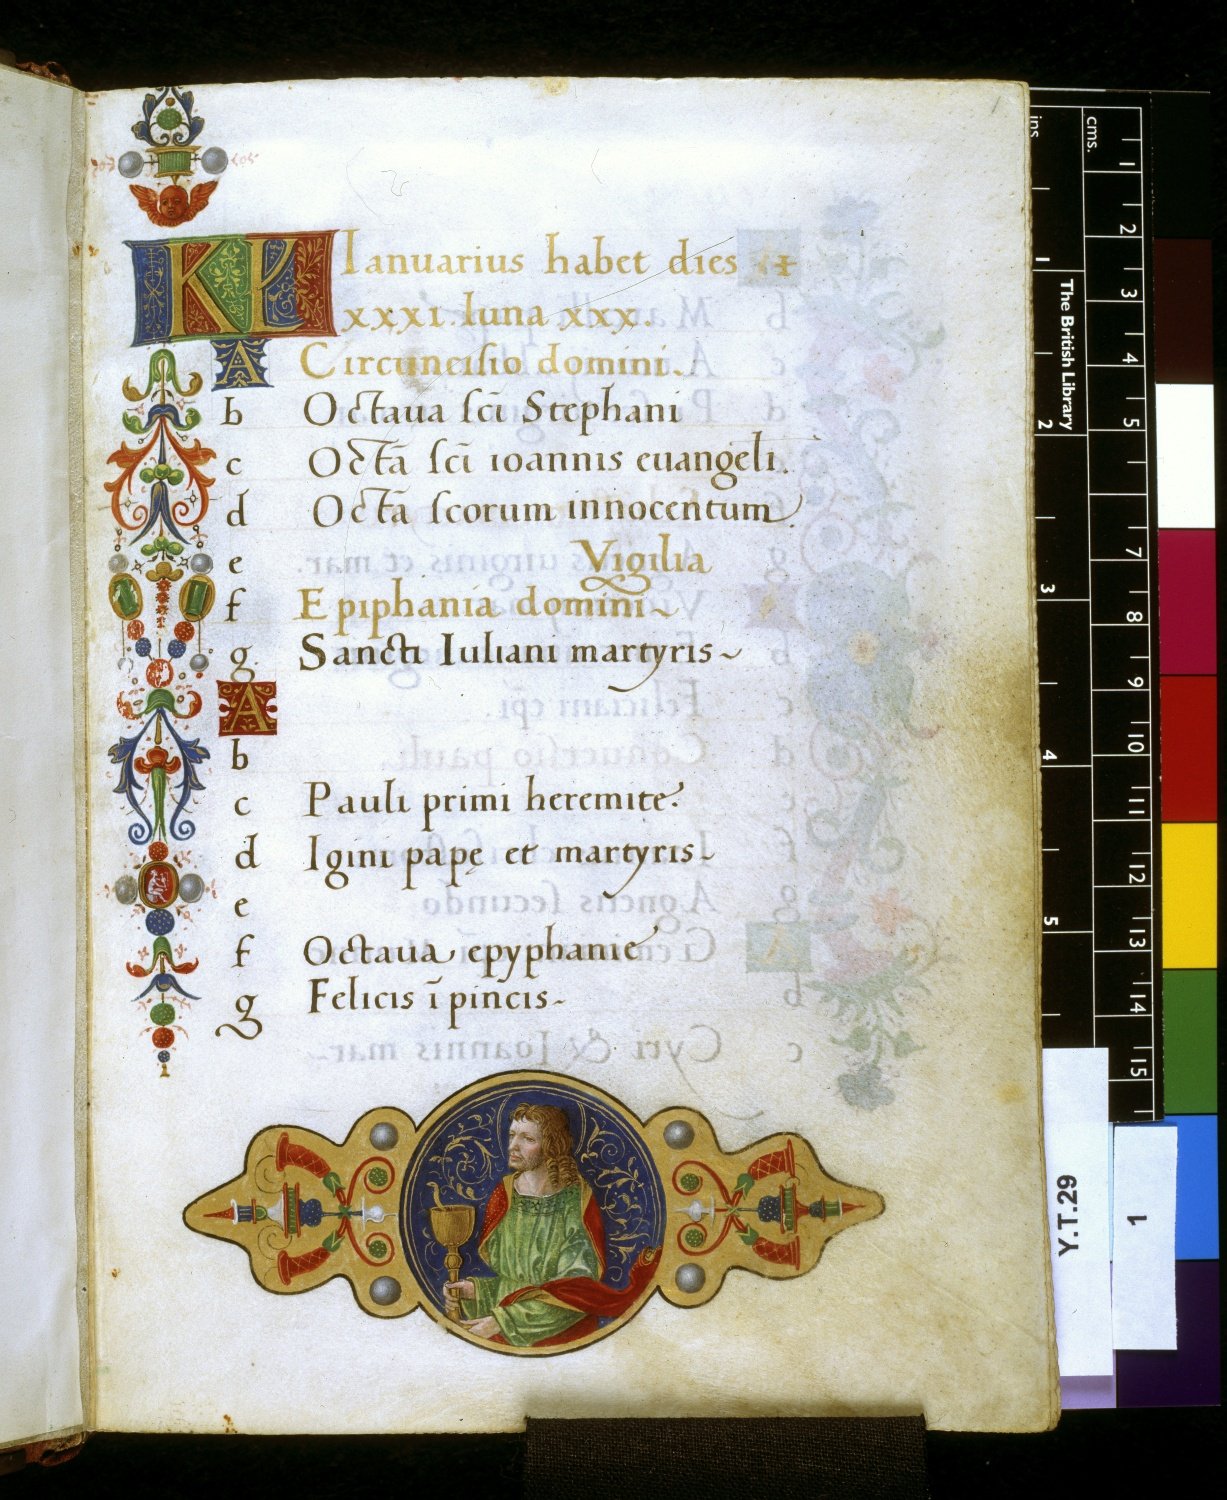 KL Ianuarius habet dies
xxxi. luna xxx.
A Circuncisio domini.
b Octaua sci̅ Stephani
c Octa̅ sci̅ ioannis euangeli.
d Octa̅ scorum innocentum.
e Vigilia
f Epiphania domini
g. Sancti Iuliani martyris
A
b
c Pauli primi heremite.
d Igini papę et martyris
e
f Octaua epyphanie
g Felicis i̅ pincis
ins
cms.
1 2 3 4 5 7 8 9 10 11 12 13 14 15
1 2 3 4 5
The British Library
Y.T.29
1